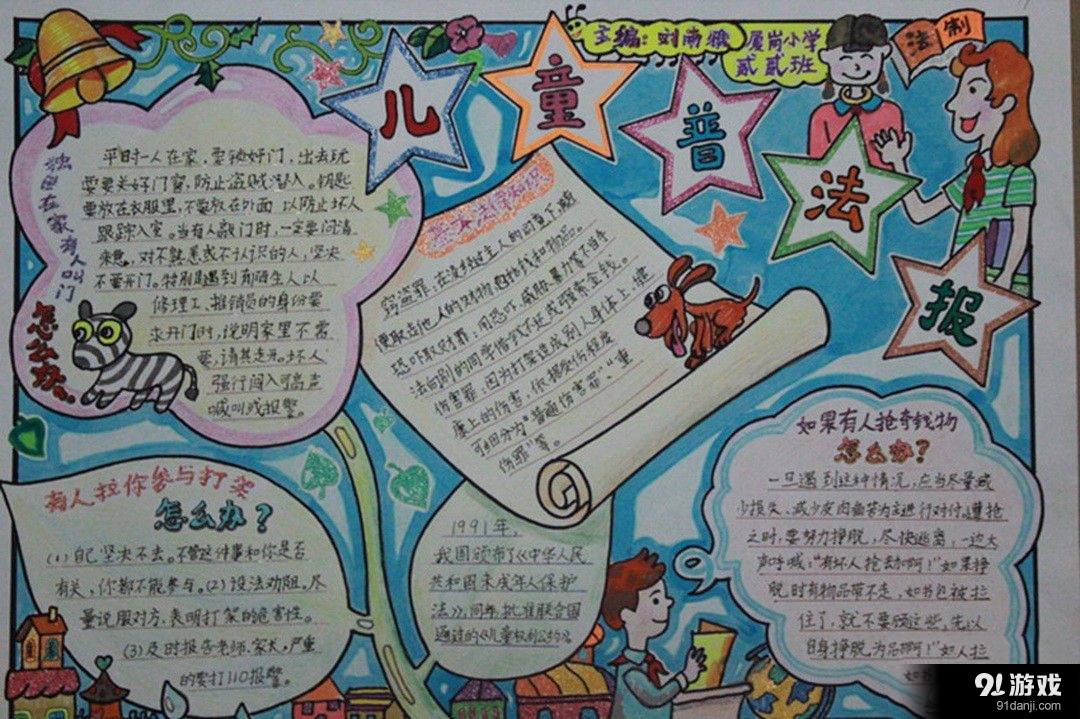 主编:刘雨雅
厦岗小学
贰贰班
法制
儿童普法报
独自在家有人叫门
怎么办
平时一人在家,要锁好门,出去玩
需要关好门窗,防止盗贼潜入。钥匙
要放在衣服里,不要放在外面 以防止坏人
跟踪入室。当有人敲门时,一定要问清
来意,对不熟悉或不认识的人,坚决
不要开门。特别是遇到有陌生人以
修理工、推销员的身份要
求开门时,说明家里不需
要,请其走开。坏人
强行闯入可高声
喊叫或报警。
法律知识
窃盗罪:在没经过主人的同意下,随
便取走他人的财物
恐吓取财罪:用恐吓、威胁、暴力等不当手
法向别的同学借或勒索金钱。
伤害罪:因为打架造成别人身体上、健
康上的伤害,依据受伤程度
可细分为“普通伤害罪”、“重
伤罪”等。
有人拉你参与打架
怎么办?
(1)自己坚决不去。不管这件事和你是否
有关,你都不能参与。(2)设法劝阻。尽
量说服对方,表明打架的危害性。
(3)及时报告老师、家长。严重
的要打110报警。
1991年,
我国颁布了《中华人民
共和国未成年人保护
法》。同年,批准联合国
通过的《儿童权利公约》。
如果有人抢夺钱物
怎么办?
一旦遇到这种情况,应当尽量减
少损失、减少皮肉之苦为主进行对付。遭抢
之时,要努力挣脱,尽快逃离,一边大
声呼喊:“有坏人抢劫啊!”如果挣
脱时有物品带不走,如书包被拉
住了,就不要顾这些,先以
自身挣脱为
91游戏
91danji.com